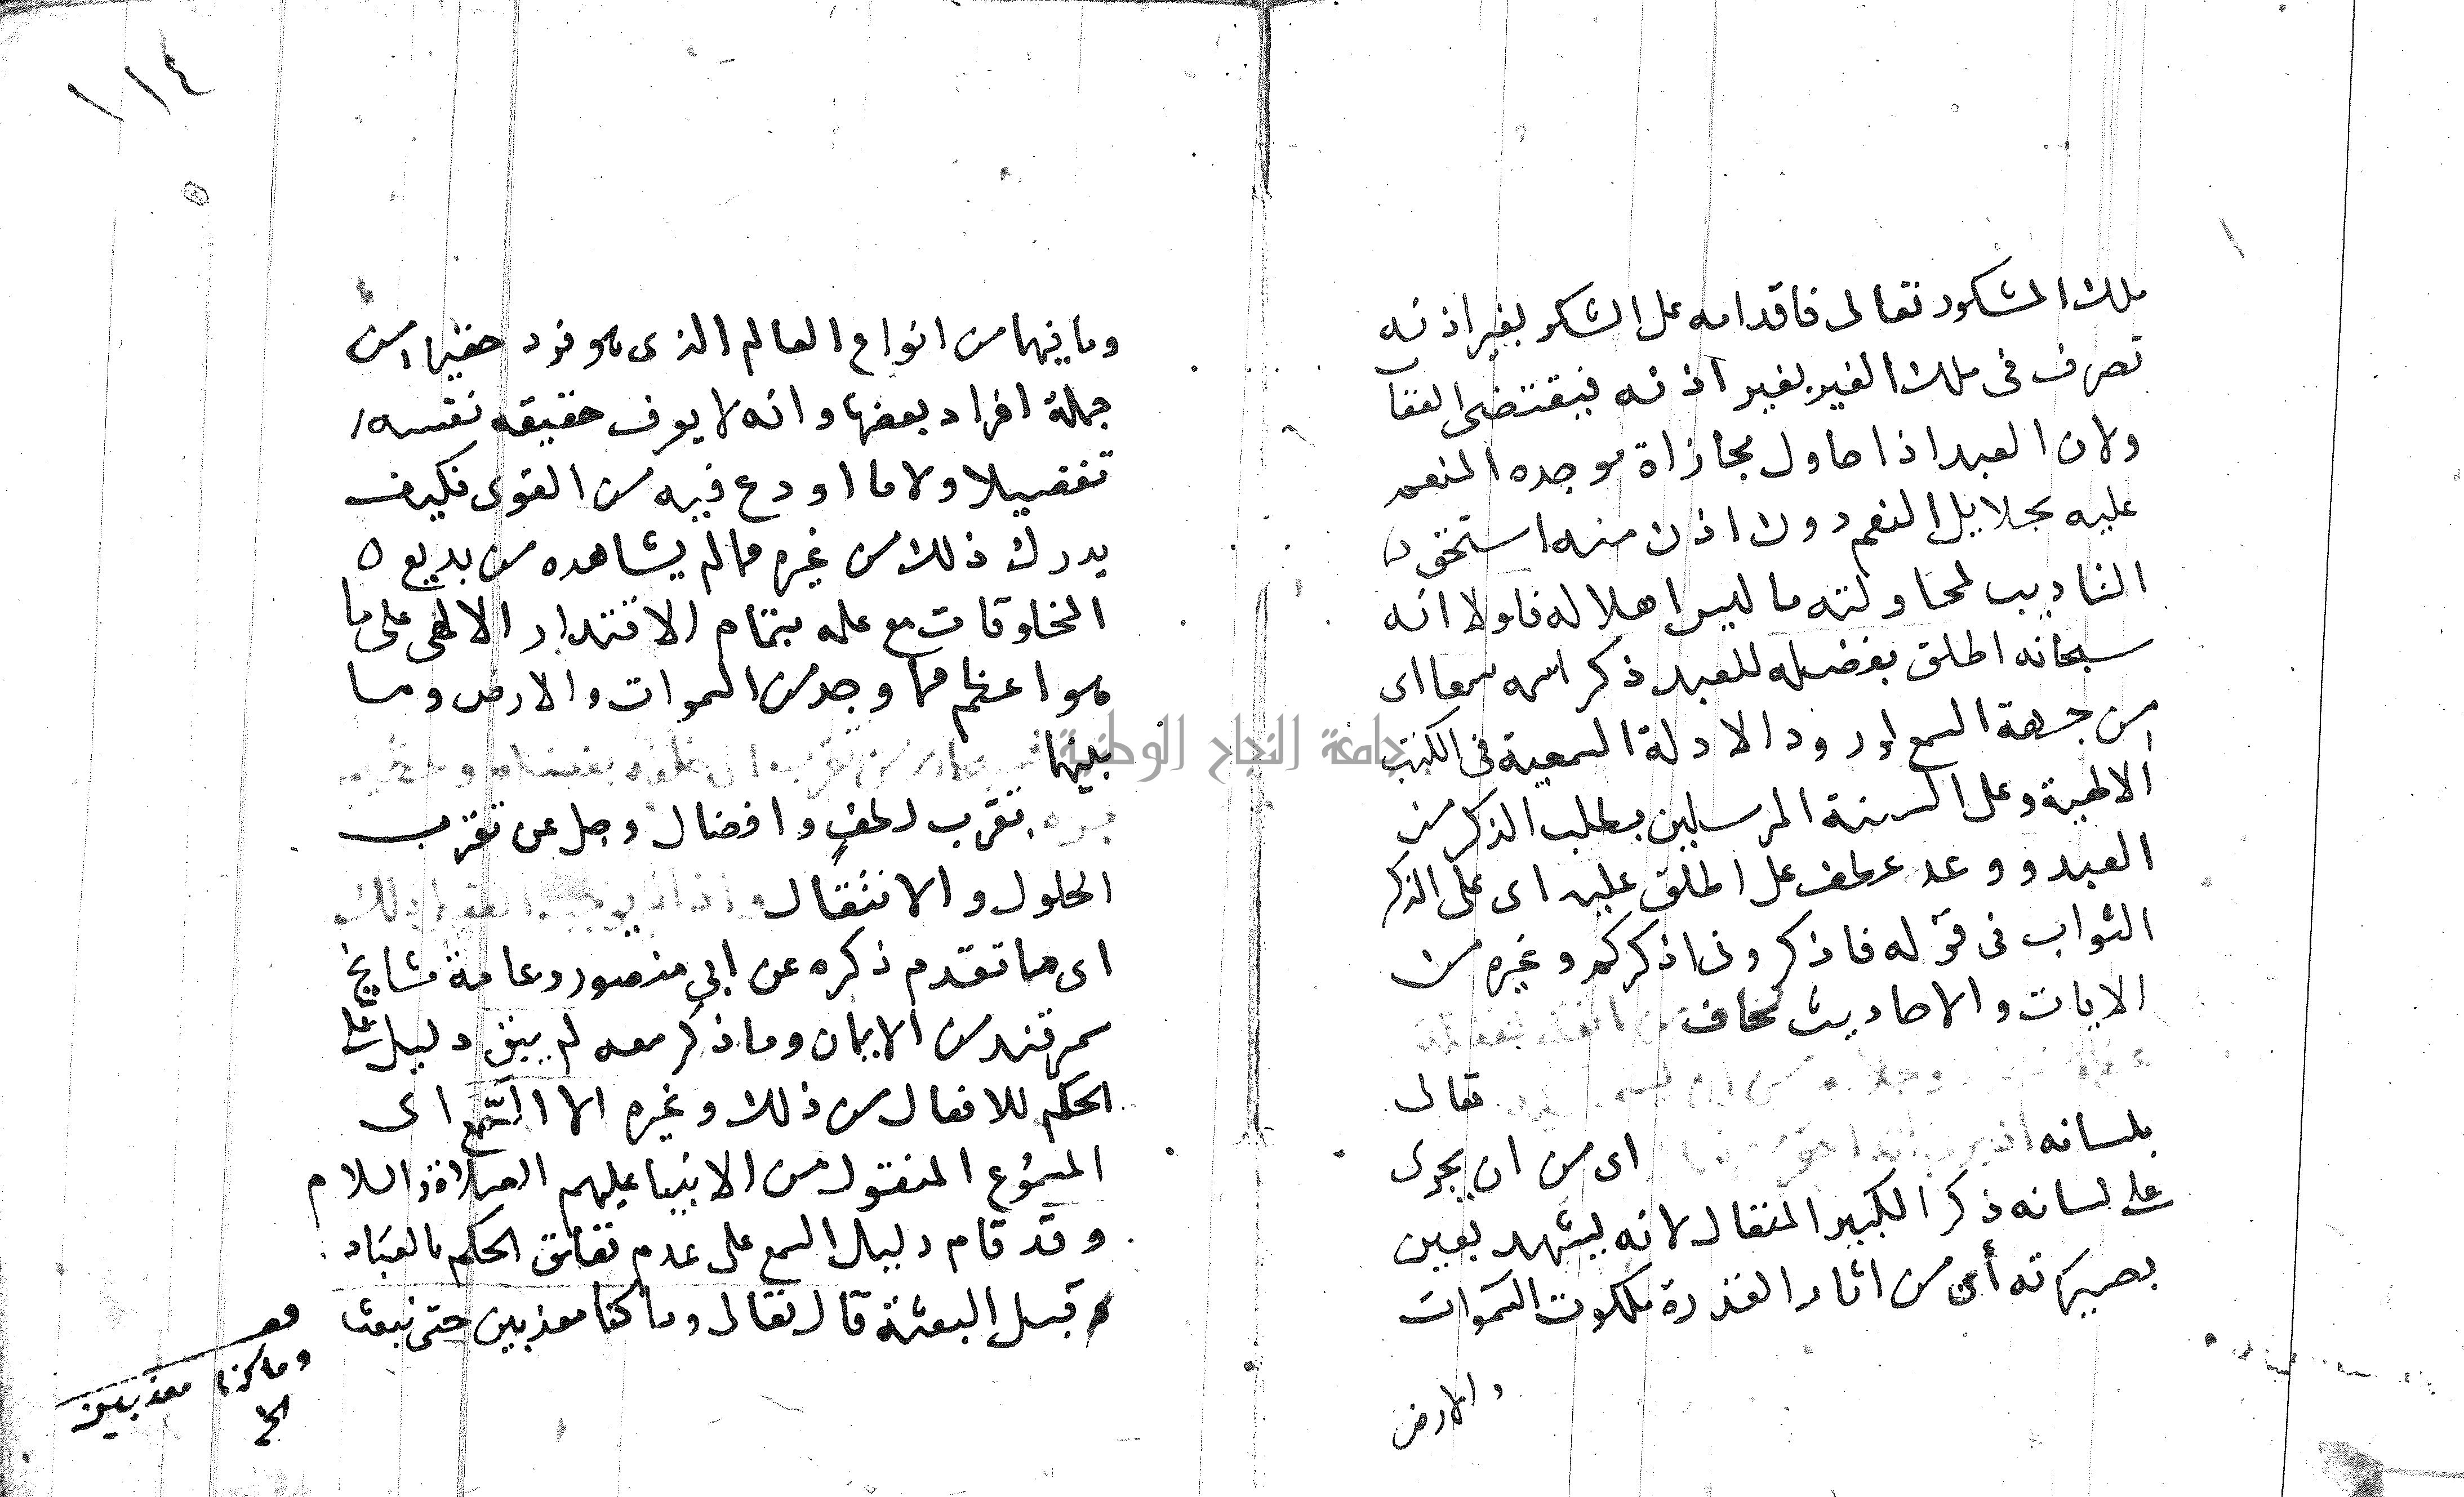 ملك المشكور تعالى فاقدامه على الشكر بغير اذنه
تصرف فى ملك الغير بغير اذنه فيقتضى العقا
ولان العبد اذا حاول مجازاة موجده المنعم
عليه بجلايل النعم دون اذن منه استحق
التاديب لمحاولته ما ليس اهلا له فلولا انه
سبحانه اطلق بفضله للعبد ذكر اسمه سمعا اى
من جهة السمع لورود الادلة السمعية فى الكتب
الالهية وعلى السنة المرسلين بطلب الذكر من
العبد ووعد عطف على اطلق عليه اى على الذكر
الثواب فى قوله فاذكرونى اذكركم وغيره من
الايات والاحاديث لخاف
تعالى
بلسانه اى من ان يجرى
على لسانه ذكر الكبير المتعال لانه يشهد بعين
بصيرته أى من اثار القدرة ملكوت السموات
والارض
١١٤
وما فيهما من انواع العالم الذى هو فرد حقير من
جملة افراد بعضها وانه لا يعرف حقيقه نفسه
تفصيلا ولا ما اودع فيه من القوى فكيف
يدرك ذلك من غيره مما لم يشاهده من بديع
المخلوقات مع علمه بتمام الاقتدار الالهى على ما
هو اعظم مما وجد من السموات والارض وما
بينهما
تقرب لطف وافضال وجل عن تقرب
الحلول والانتقال
اى مما تقدم ذكره عن ابى منصور وعامة مشايخ
سمرقند من الايمان وما ذكر معه لم يبق دليل على
الحكم للافعال من ذلك وغيره الا السمع اى
المسموع المنقول من الانبيا عليهم الصلاة والسلام
وقد قام دليل السمع على عدم تعلق الحكم بالعباد
قبل البعثة قال تعالى وما كنا معذبين حتى نبعث
وما كنا معذبين
الخ
جامعة النجاح الوطنية